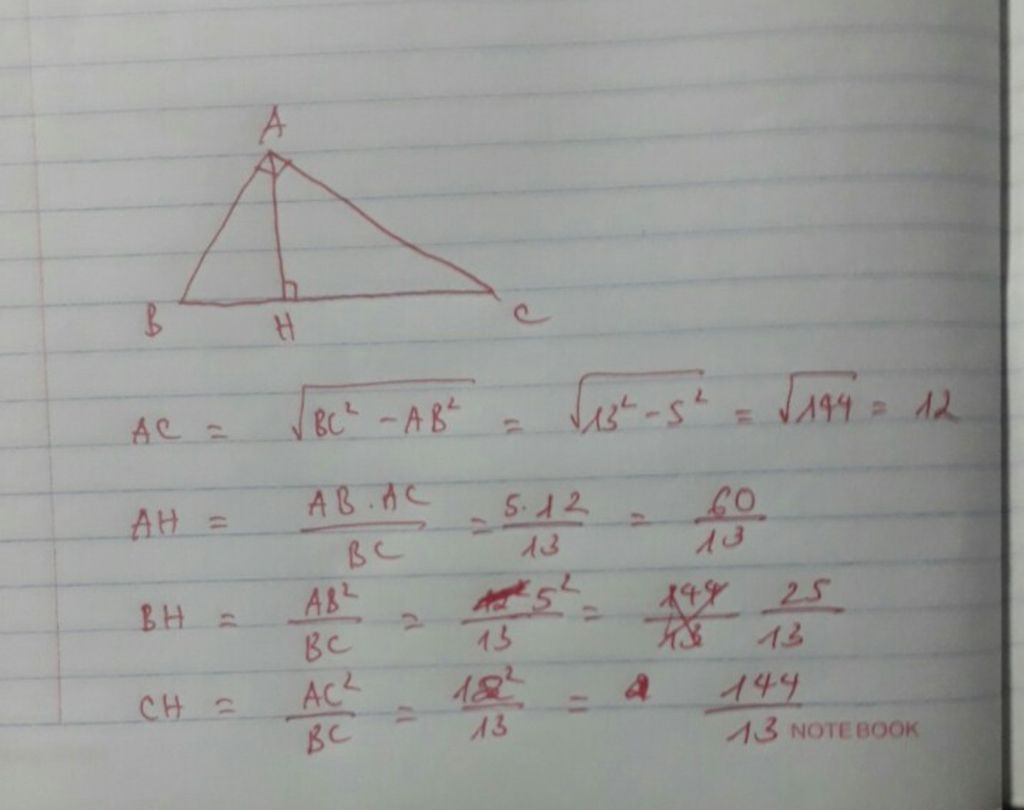 A
B H C
AC = √(BC² - AB²) = √(13² - 5²) = √144 = 12
AH = AB.AC / BC = 5.12 / 13 = 60 / 13
BH = AB² / BC = 5² / 13 = 144 / 13 25 / 13
CH = AC² / BC = 12² / 13 = 144 / 13
NOTEBOOK